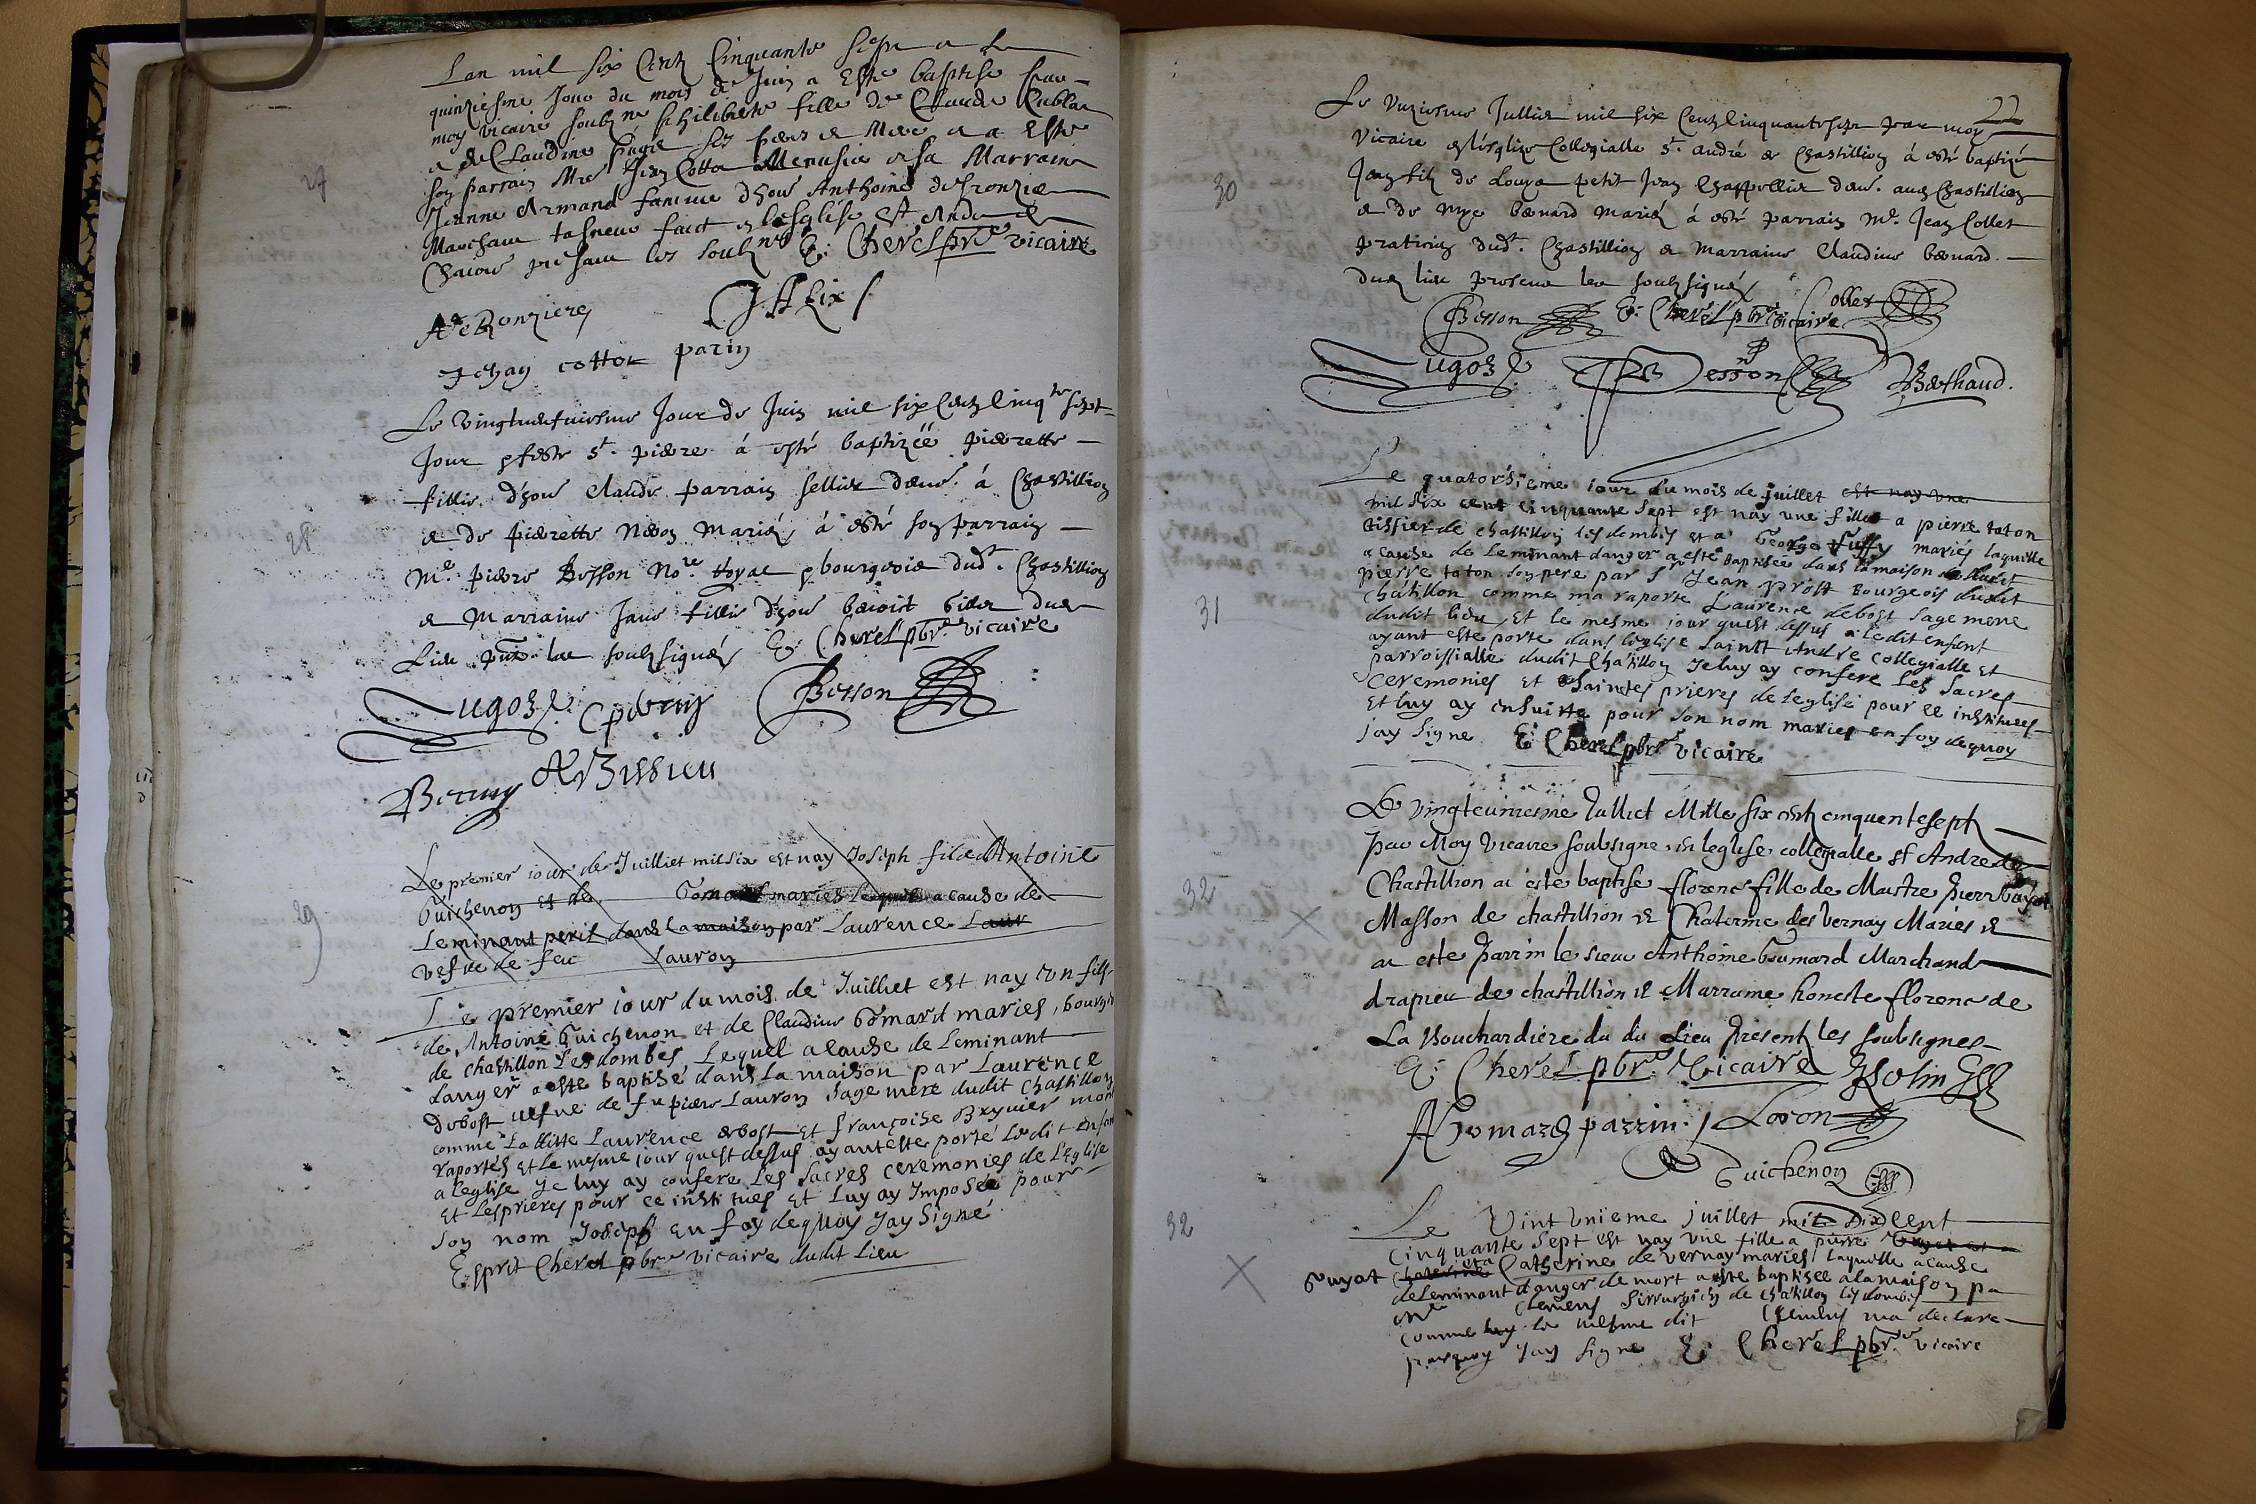 Lan mil six Centz Cinquante sept et le
quinziesme Jour du mois de Juin a Esté baptisé par
moy vicaire soubzne philiberte fille de Claude
et de Claudine pagé ses peres et Mere et a Esté
son parrain Mre Jean Cottor Menusie et sa Marraine
Jeanne Armand famme dhon Anthoine deronzie
Marchant faict en lesglise st Andre
les soubznes E. Cherel pbre vicaire
27
ADeRonzieres J. Alix
Jehan cottor parin
Le vingtneufviesme Jour de Juin mil six Centz Cinqte sept
Jour & feste St. pierre á esté baptizéé pierrette
fillie d'hon Claude parrain sellier demt. à Chastillion
et de pierrette Mariés á esté son parrain
28
Me. pierre Besson Nore. Royal & bourgeois dudt. Chastillion
et Marraine Jane fillie d'hon benoist dud
Lieu pnt. les soubzsignés E. Cherel pbre. vicaire
Lugoz Besson
Le premier iour de Juilliet mil six est nay Joseph fils dAntoine
Guichenon et de Gomard mariés lequel a cause de
29
Leminant peril dans la maison par Laurence
vefue de feu Lauron
Le premier iour du mois de Juilliet est nay un fils
de Antoine Guichenon et de Claudine Gomard mariés, bourgeois
de chastillon Lesdombes Lequel a cause de Leminant
danger a esté baptisé dans la maison par Laurence
Debost vefue de fu piere Lauron Sage mere dudit Chastillon
comme Laditte Laurence debost et françoise Bryuier mont
raportés et le mesme iour quest dessus ayant este porté ledit enfant
a leglise Je luy ay confere Les Sacres ceremonies de LEglise
et Lesprieres pour ce institues et Luy ay Imposée pour
son nom Joseph en foy dequoy Jay Signé
Esprit Cherel pbre vicaire dudit Lieu
22
Le unziesme Julliet mil six Centz Cinquantesept par moy
Vicaire en l'esglize Collegialle St. andré de Chastillion à esté baptizé
30
Jean filz de Louys petit Jean Chappellier demt. aud Chastillion
et de benard Mariés á esté parrain Me. Jean Collet
praticien dudt. Chastillion et Marraine Claudine benard.
dud lieu presens les soubzsignés
Besson E. Cherel pbre vicaire Collet
Lugoz Besson Berthaud.
Le quatorsieme iour du mois de juillet est nay une
mil six cent cinquante sept est nay une fille a pierre toton
tissier de chastillon les dombes et a George mariés laquelle
a cause de Leminant danger a esté baptisée dans la maison dudit
pierre toton son pere par Sr Jean prost Bourgeois dudit
chátillon comme ma raporte Laurence debost Sage mere
31
dudit lieu, et le mesme iour quest dessus ledit enfent
ayant este porte dans leglise Sainct Andre collegialle et
parroissialle dudit Chatillon Je luy ay confere Les Sacres
Ceremonies et Saintes prieres de leglise pour ce institues
et luy ay ensuitte pour son nom maries en foy dequoy
jay Signe E Cherel pbre vicaire
Le vingteuniesme Julliet Mille six centz cinquentesept
par Moy Vicaire soubsigne en leglise collegialle st Andre de
32
Chastillion a este baptise florence fille de Maistre Pierre Guyot
Masson de chastillion et Chaterine des Vernay Mariés et
a este Parrin le sieur Anthoine Goumard Marchand
drapieu de chastillion et Marraine honeste florence de
La Bouchardiere du du Lieu Present les soubsignes
E. Cherel pbre. Vicaire
AGomard parrin Loron
Guichenon
32
Le Vint Unieme juillet mil Six Cent
Cinquante Sept est nay une fille a pierre
Guyot et a Catherine de vernay mariés laquelle a cause
de Leminant danger de mort a este baptisee a la maison pa
Mre Clemens Sirrurgien de chatillon les dombes
comme le mesme dit Clemens ma declare
parquoy Jay Signe E. Cherel pbre. vicaire